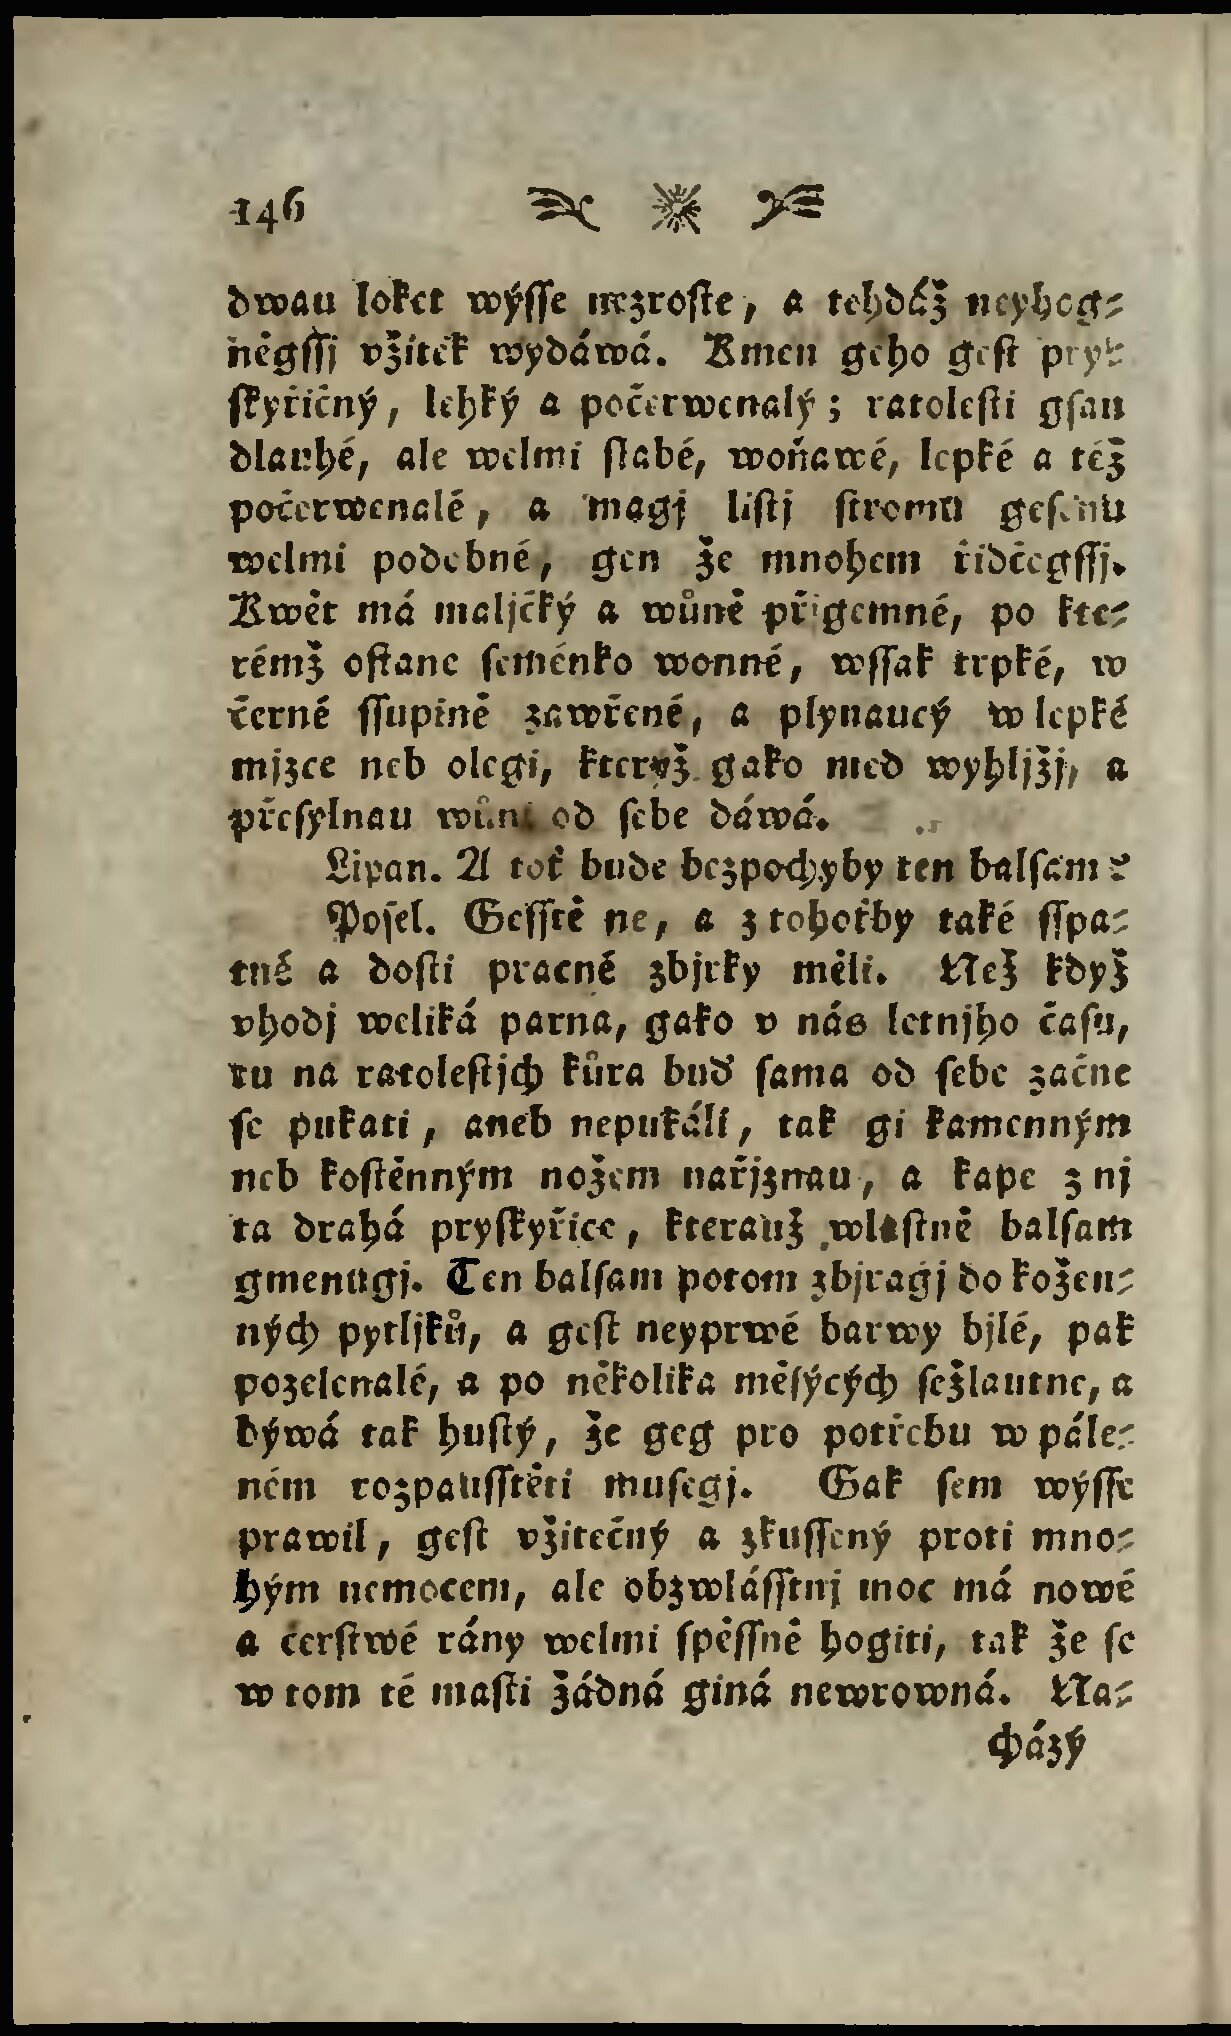 146
dwau loket wýſſe nezroſte, a tehdáž neyhog⸗
něgſſj vžitek wydáwá. Kmen geho geſt pry⸗
ſkyřičný, lehký a počerwenalý; ratoleſti gſau
dlauhé, ale welmi ſlabé, woňawé, lepké a též
počerwenalé, a magj liſtj ſtromu geſenu
welmi podobné, gen že mnohem řidčegſſj.
Kwět má maljčký a wůně přigemné, po kte⸗
rémž oſtane ſeménko wonné, wſſak trpké, w
černé ſſupině zawřené, a plynaucý w lepké
mjzce neb olegi, kterýž gako med wyhljžj, a
přeſylnau wůni od ſebe dáwá.
Lipan. A toť bude bezpochyby ten balſam?
Poſel. Geſſtě ne, a z tohoťby také ſſpa⸗
tné a doſti pracné zbjrky měli. Než když
vhodj weliká parna, gako v nás letnjho čaſu,
tu na ratoleſtjch kůra buď ſama od ſebe začne
ſe pukati, aneb nepukáli, tak gi kamenným
neb koſtěnným nožem nařjznau, a kape z nj
ta drahá pryſkyřice, kterauž wlaſtně balſam
gmenugj. Ten balſam potom zbjragj do kožen⸗
ných pytljků, a geſt neyprwé barwy bjlé, pak
pozelenalé, a po několika měſýcých ſežlautne, a
býwá tak huſtý, že geg pro potřebu w pále⸗
ném rozpauſſtěti muſegj. Gak ſem wýſſe
prawil, geſt vžitečný a zkuſſený proti mno⸗
hým nemocem, ale obzwláſſtnj moc má nowé
a čerſtwé rány welmi ſpěſſně hogiti, tak že ſe
w tom té maſti žádná giná newrowná. Na⸗
cházý